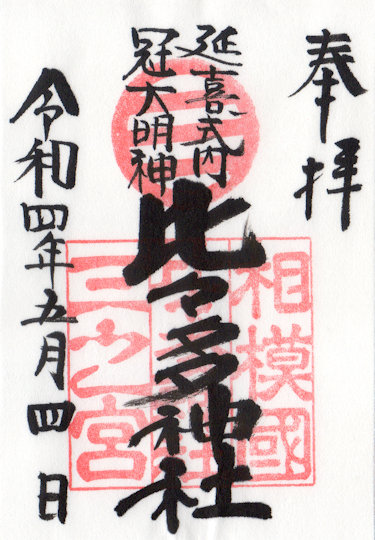 奉拝
延喜式内
冠大明神
比々多神社
相模國
三之宮
令和四年五月四日